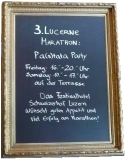 3. LUCERNE
MARATHON:
PaWata Party
Freitag 16 - 20 Uhr
Samstag 11 - 17 Uhr
auf der Terrasse
Das Festivalhotel
Schweizerhof Luzern
Wünscht guten Appetit und
Viel Erfolg am Marathon!